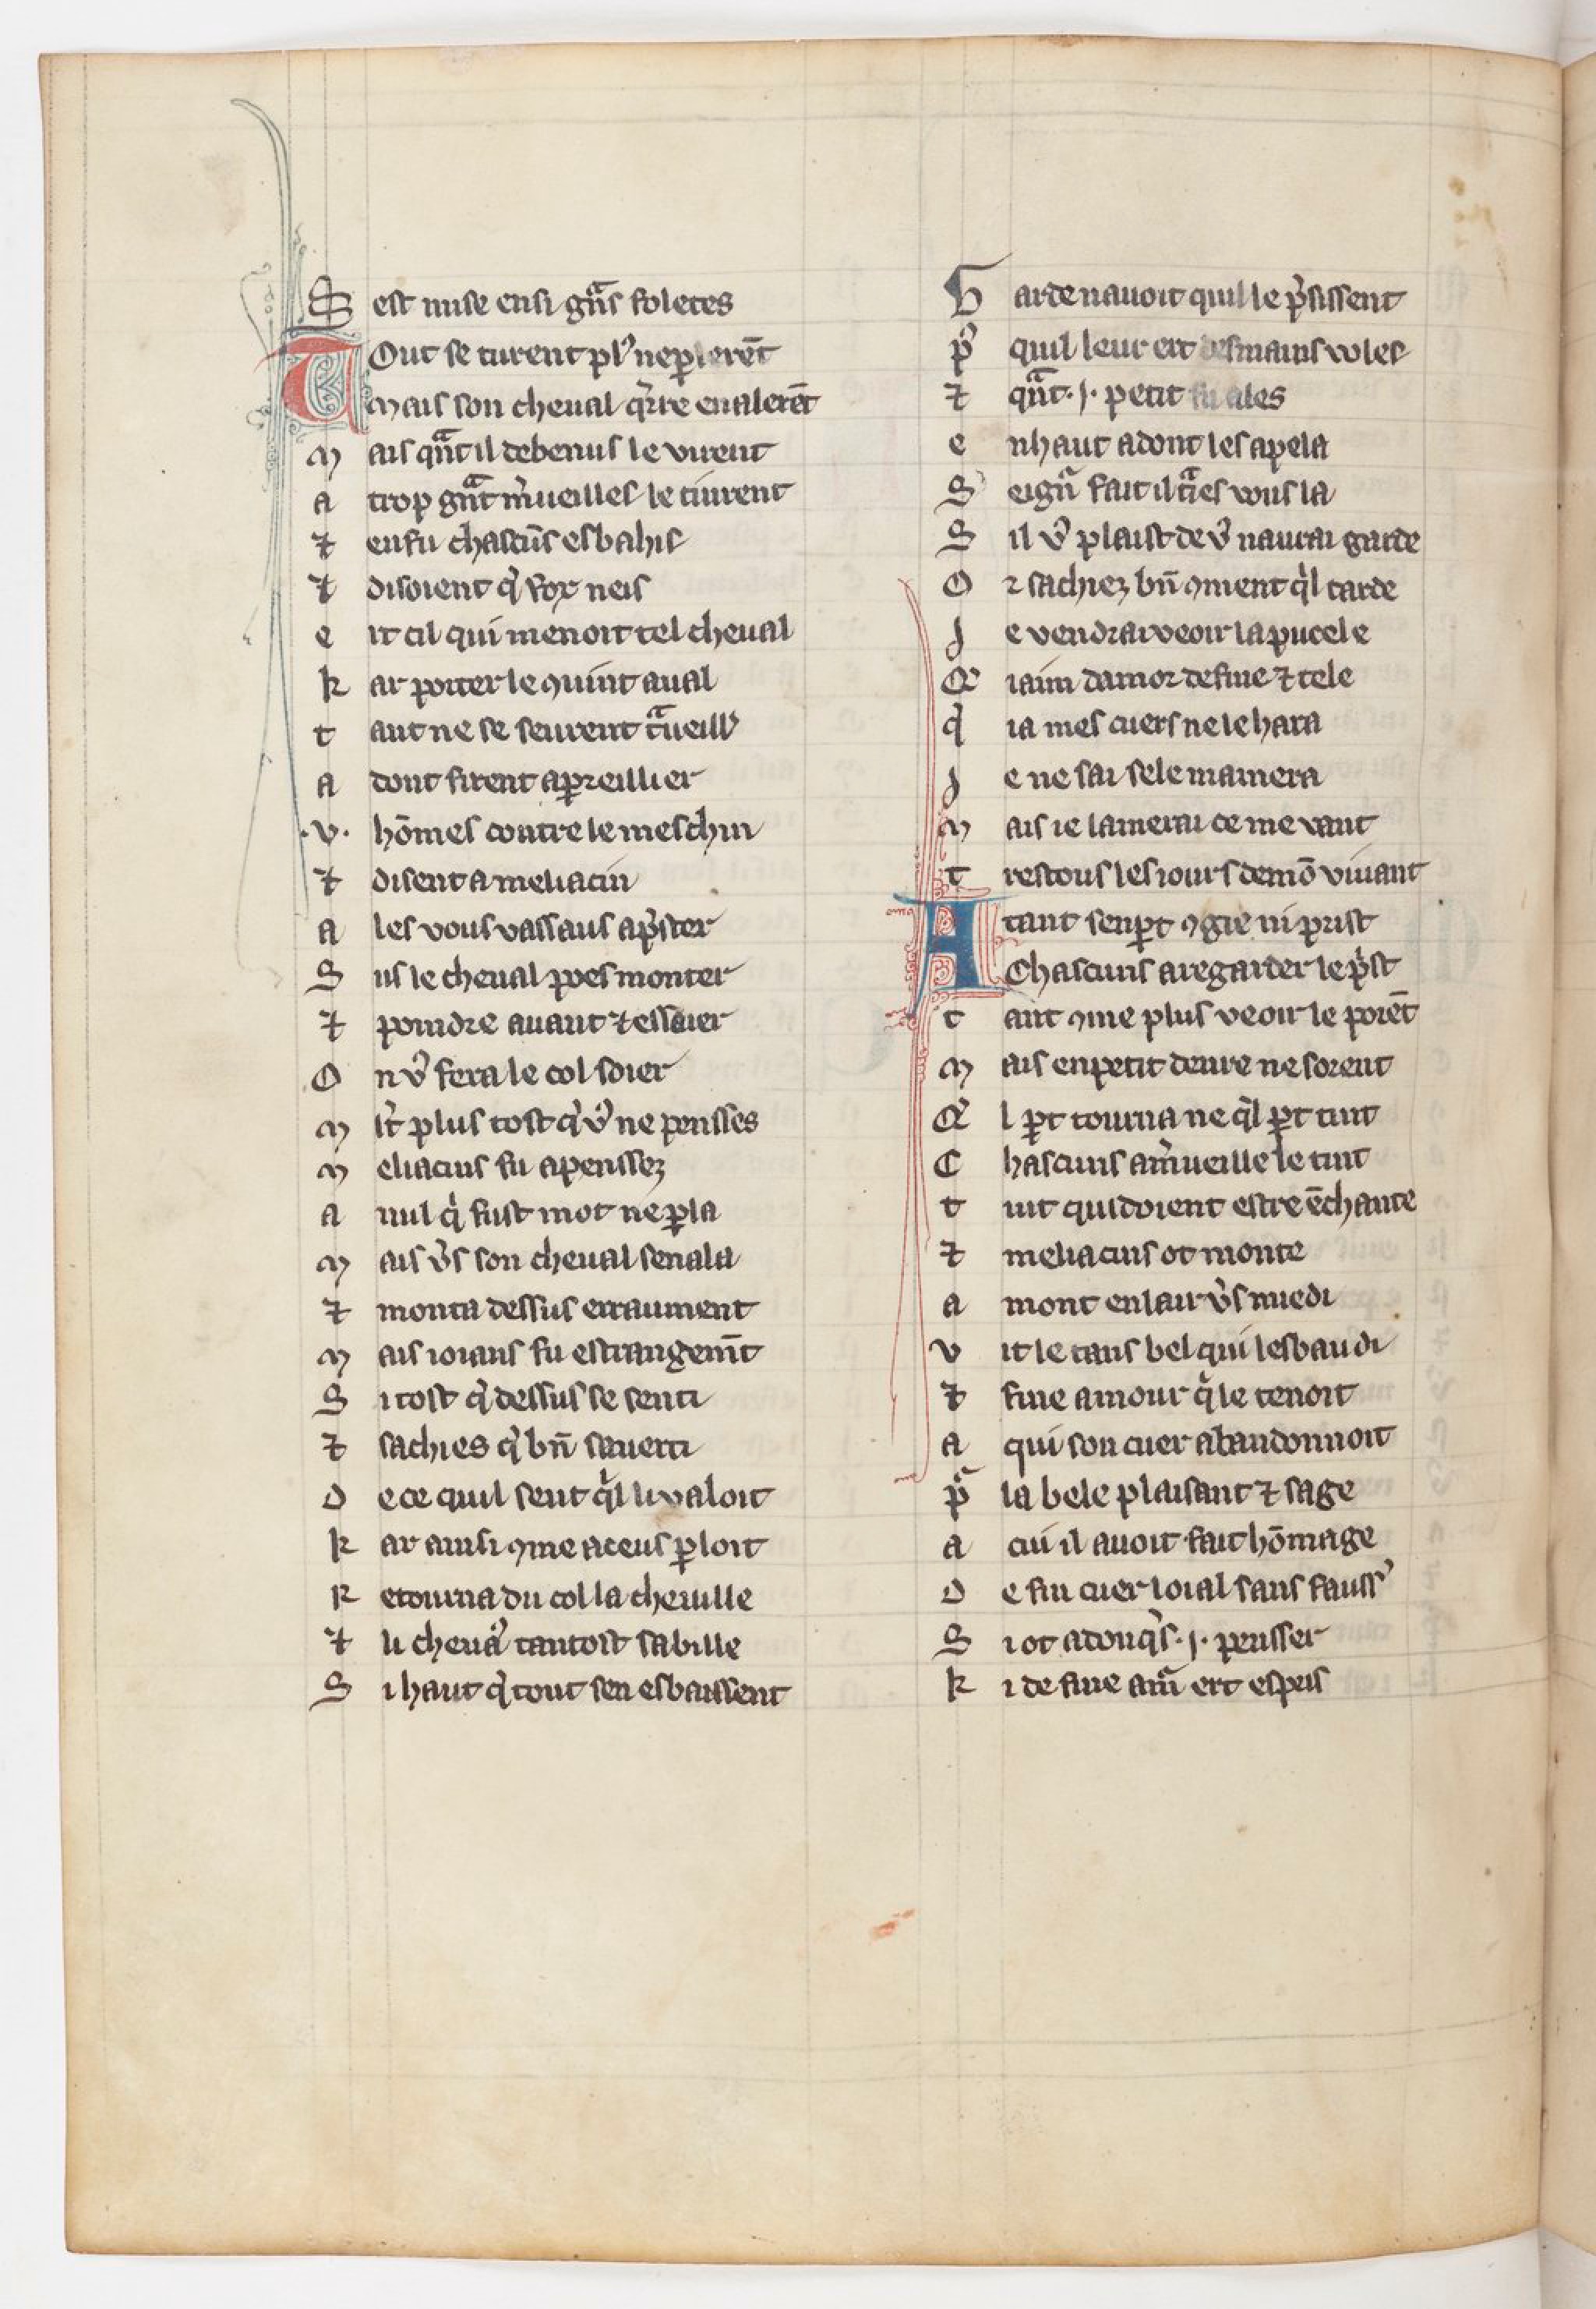 S est mise ensi gᷓns foletes
TOut se turent pl᾽ ne ꝑlerēt
mais son cheual q̄rre en alerēt
m ais qᷓnt il de benus le virent
a trop gᷓnt m̾ueilles le tinrent
⁊ en fu chascūs esbahis
⁊ disoient q̇ fox neis
e rt cil qui menoit tel cheual
k ar porter le ꝯuint aual
t ant ne se seurent tᷓueill᾽
a dont firent apareillier
.v. hōmes contre le meschin
⁊ disent a meliacin
a les vous vassaus ap̾ster
S us le cheual poes monter
⁊ poindre auant ⁊ essaier
O n v᾽ fera le col soier
m lt̄ plus tost q̇ v᾽ ne pensses
m eliacins fu apenssez
a nul q̇ fust mot ne ꝑla
m ais v̾s son cheual senala
⁊ monta dessus erraument
m ais ioians fu estrangem̄t
S i tost q̇ dessus se senti
⁊ sachies q̇ bn̄ sauerti
D e ce quil sent q̇l li valoit
k ar ainsi ꝯme a ceus ꝑloit
R etourna du col la cheuille
⁊ li cheua᾽ tantost sabille
S i haut q̇ tout sen esbaissent
G arde nauoit quil le p̾sissent
p᾽ quil leur ert des mains voles
⁊ qᷓnt .j. petit fu ales
e nhaut adont les apela
S eign᾽ fait il tᷓies vous la
S il v᾽ plaist de v᾽ naurai garde
O r sachiez bn̄ ꝯment q̇l tarde
J e vendrai veoir la pucele
Q᾽ iaim damor de fine ⁊ tele
q̇ ia mes cuers ne le hara
J e ne sai sele mamera
m ais ie lamerai ce me vant
t restous les iours de mō viuant
A tant senpt ꝯgie ni prist
Chascuns a regarder le p̾st
t ant ꝯme plus veoir le porēt
m ais en petit deure ne sorent
Q᾽ l ꝑt tourna ne q̇l ꝑt tint
C hascuns a m̾ueille le tint
t uit quidoient estre ēchante
⁊ meliacins ot monte
a mont en lair v̾s miedi
v it le tans bel qui lesbaudi
⁊ fine amour q̇ le tenoit
a qui son cuer abandonnoit
pᷓ la bele plaisant ⁊ sage
a cui il auoit fait hōmage
D e fin cuer loial sans fauss᾽
S i ot adonq̇s .j. pensser
k i de fine am᾽ ert espris